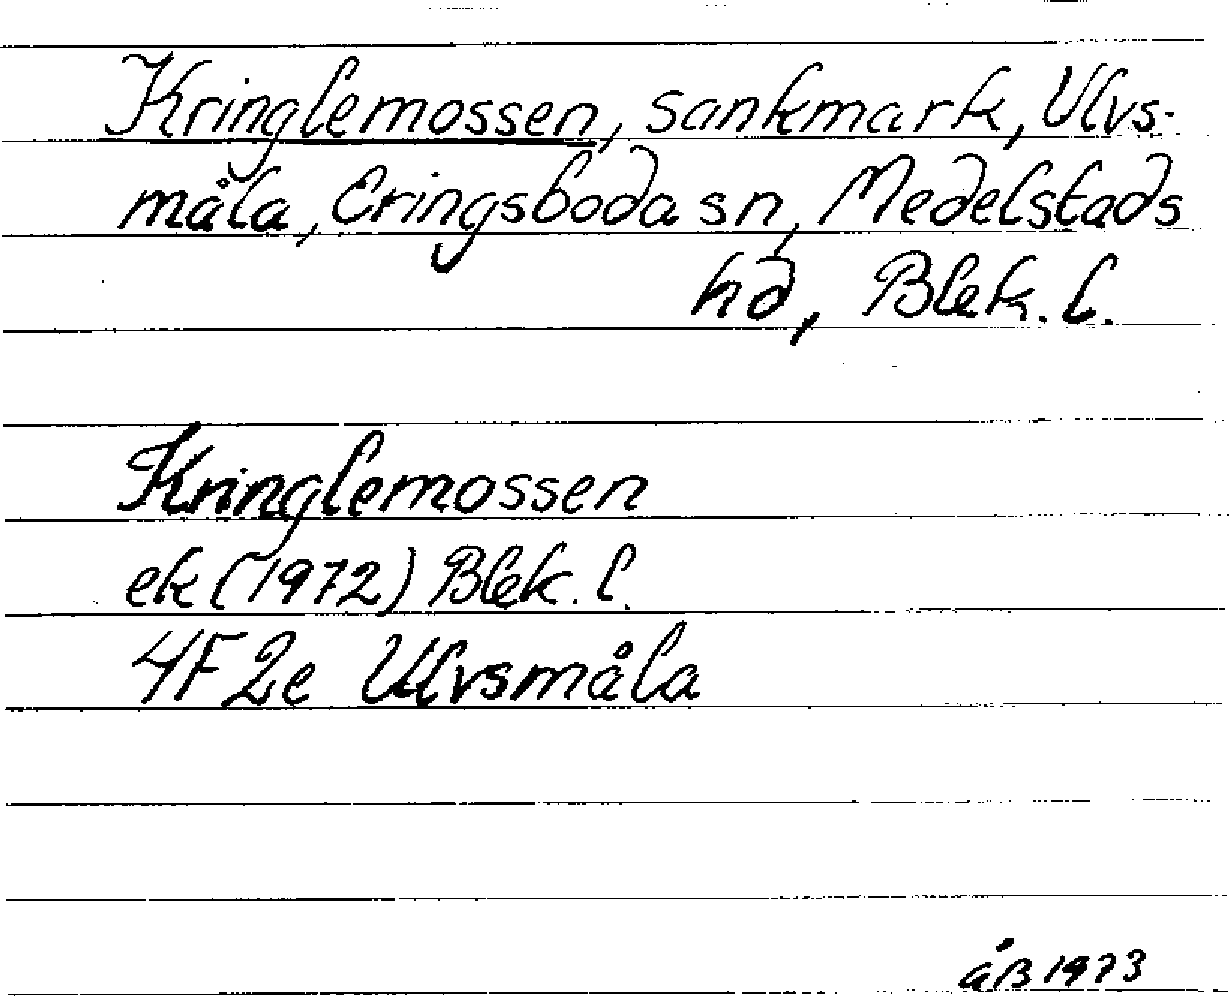 Kringlemossen, sankmark, Ulvs-
måla, Eringsboda sn, Medelstads
hd, Blek. l.
Kringlemossen
ek (1972) Blek. l.
4F 2e Ulvsmåla
åB 1973